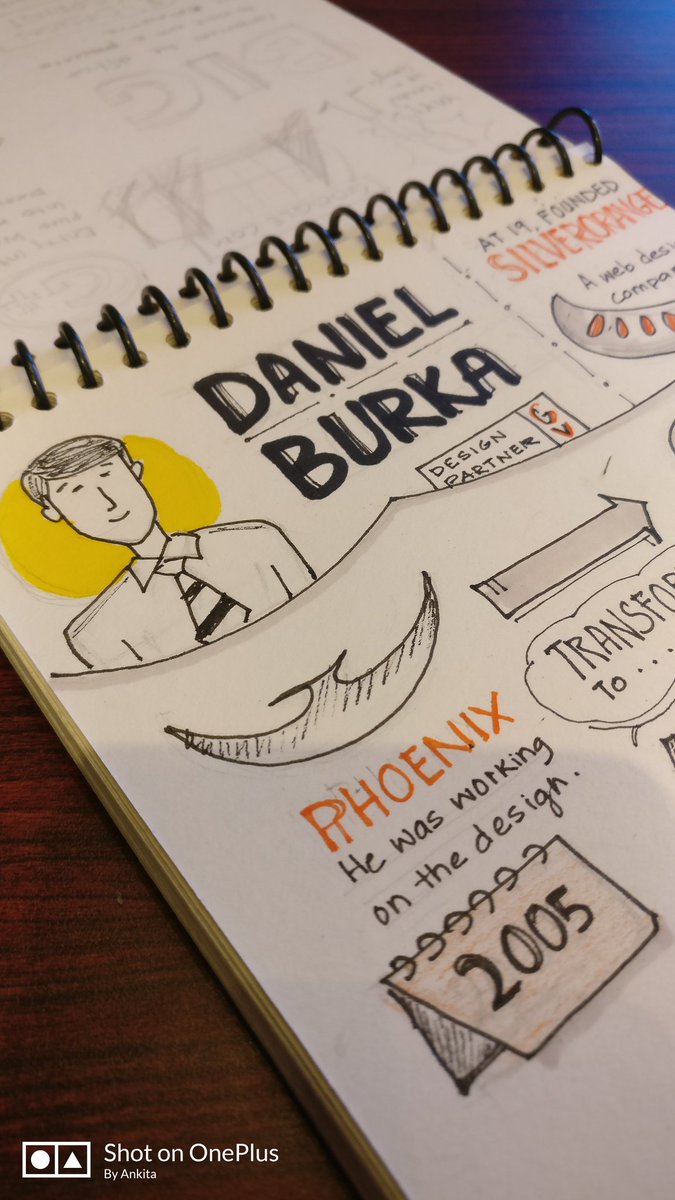 DANIEL
BURKA
DESIGN
PARTNER
GV
AT 19, FOUNDED
SILVERORANGE
A web
PHOENIX
He was working
on the design.
2005
TO...
Shot on OnePlus
By Ankita